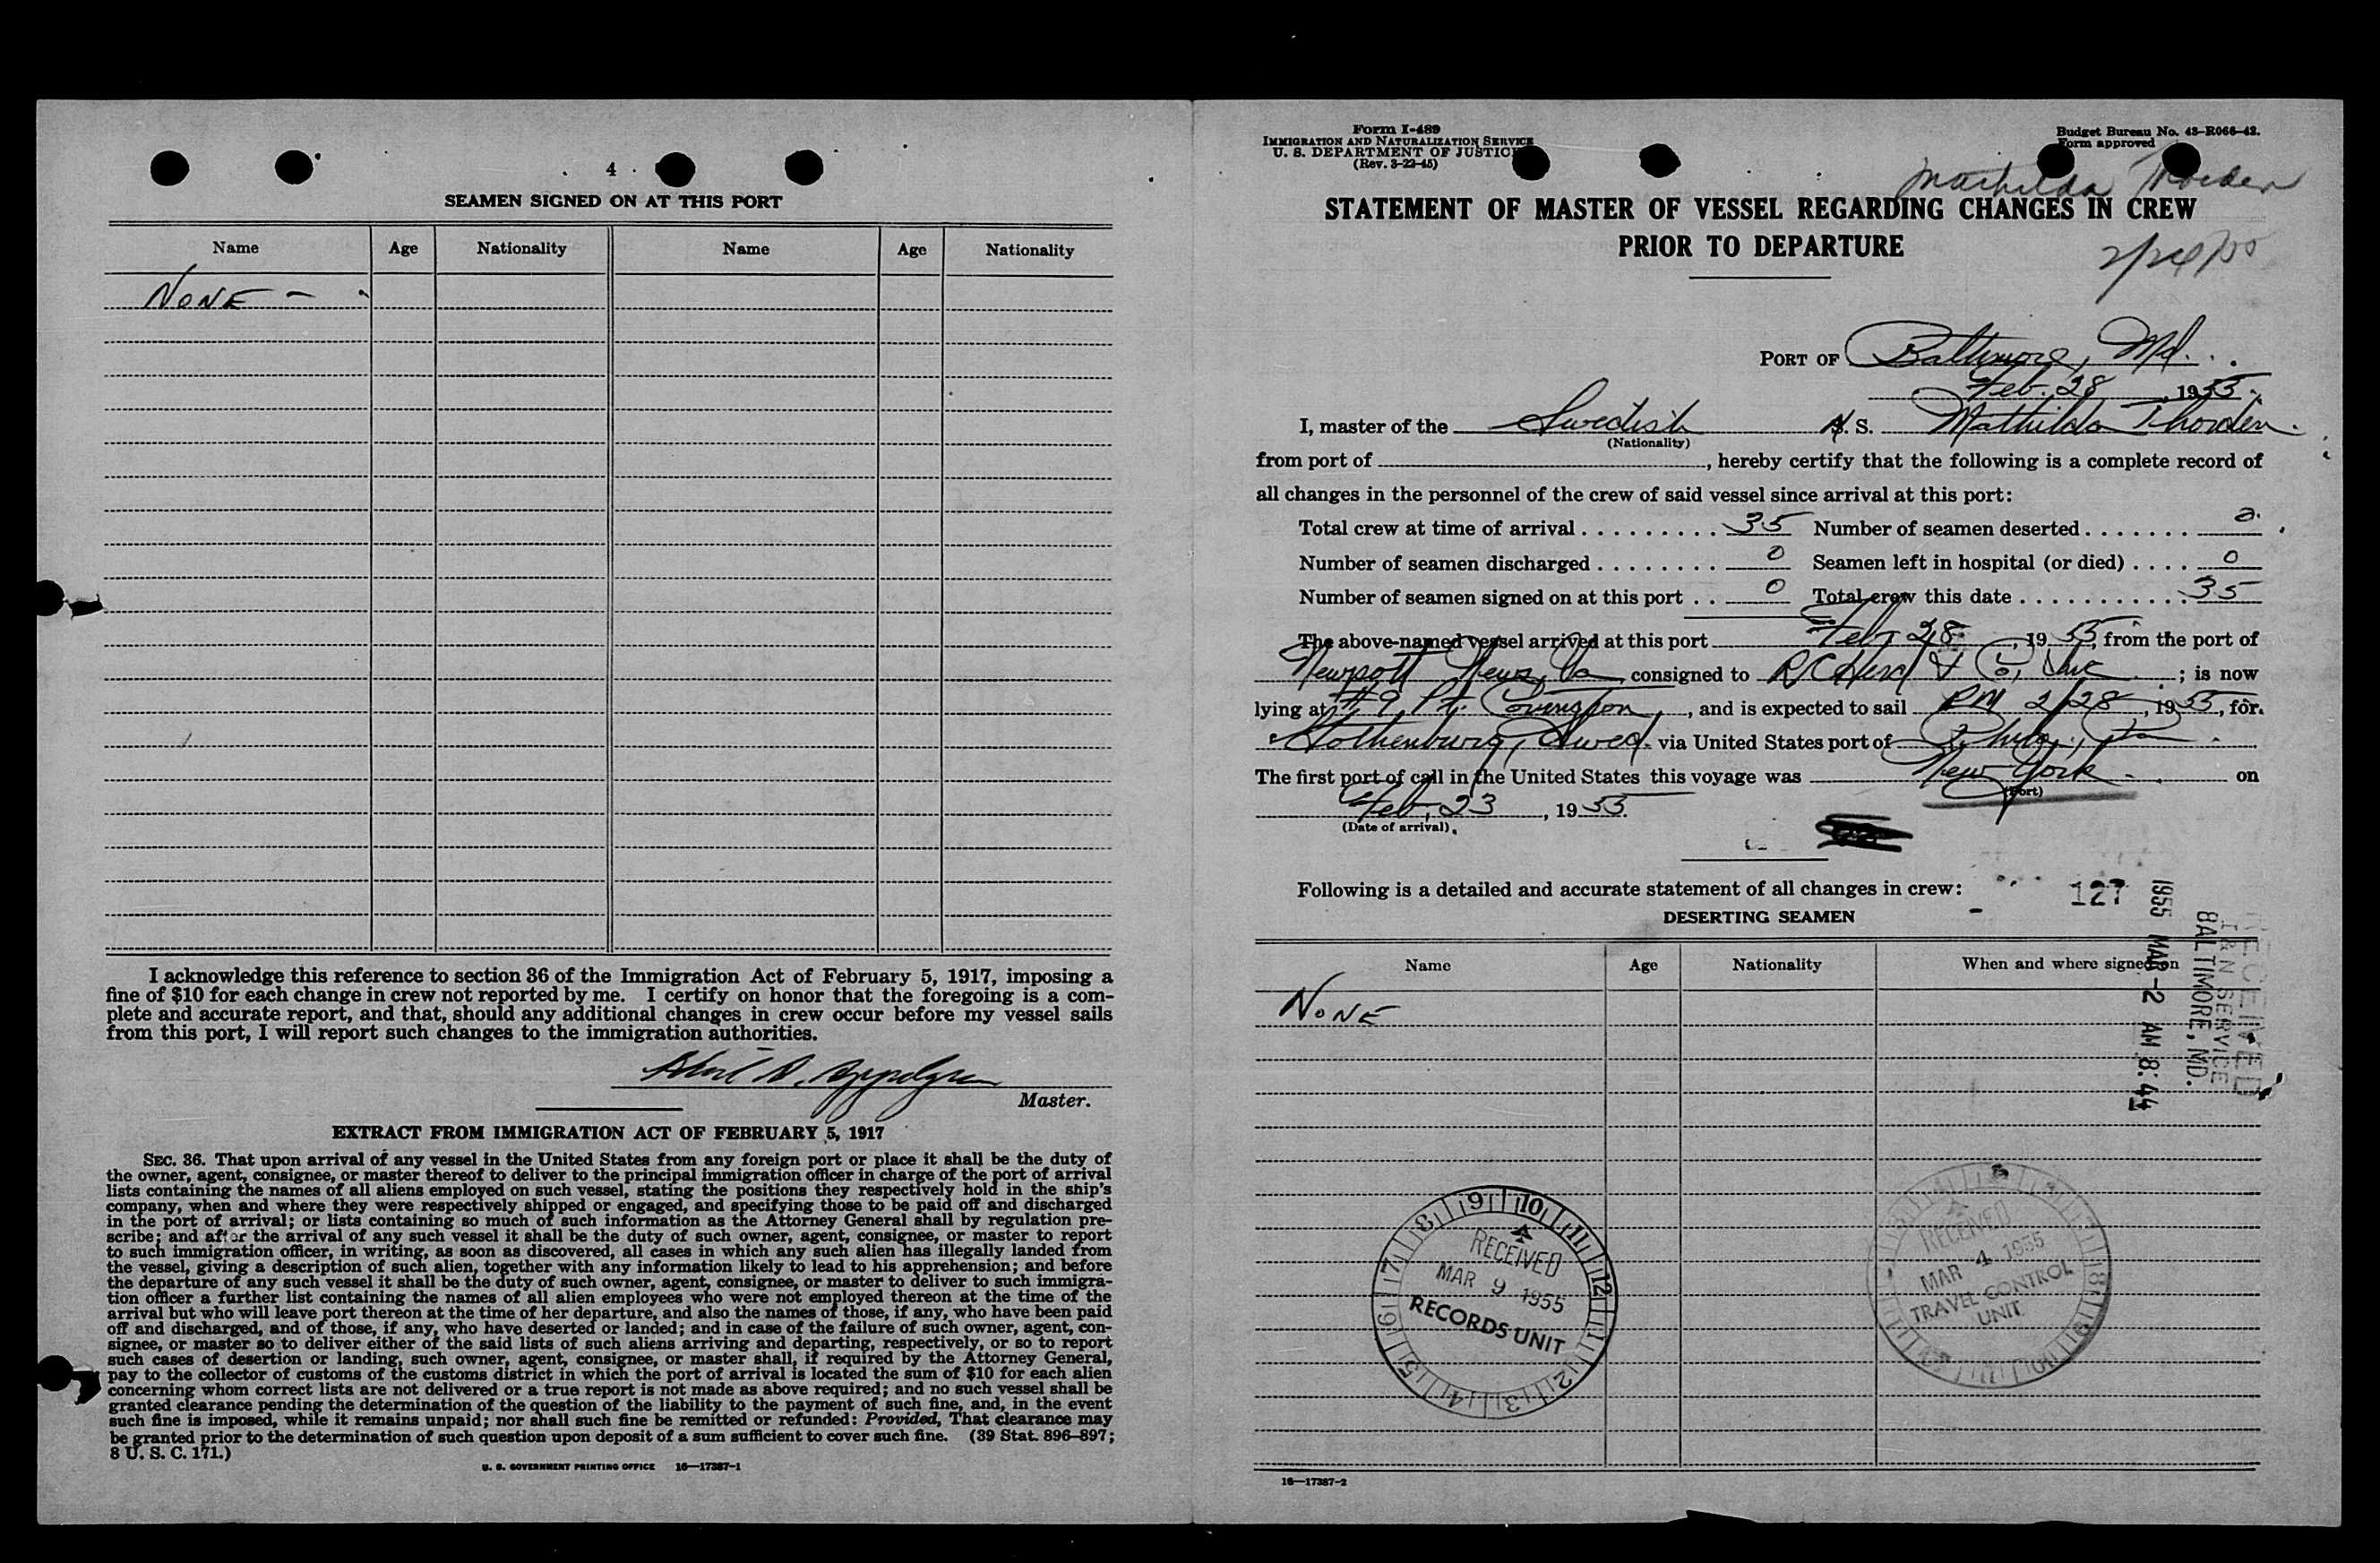 4
SEAMEN SIGNED ON AT THIS PORT
Name Age Nationality Name Age Nationality
NONE - "
I acknowledge this reference to section 36 of the Immigration Act of February 5, 1917, imposing a
fine of $10 for each change in crew not reported by me. I certify on honor that the foregoing is a com-
plete and accurate report, and that, should any additional changes in crew occur before my vessel sails
from this port, I will report such changes to the immigration authorities.
Master.
EXTRACT FROM IMMIGRATION ACT OF FEBRUARY 5, 1917
SEC. 36. That upon arrival of any vessel in the United States from any foreign port or place it shall be the duty of
the owner, agent, consignee, or master thereof to deliver to the principal immigration officer in charge of the port of arrival
lists containing the names of all aliens employed on such vessel, stating the positions they respectively hold in the ship's
company, when and where they were respectively shipped or engaged, and specifying those to be paid off and discharged
in the port of arrival; or lists containing so much of such information as the Attorney General shall by regulation pre-
scribe; and after the arrival of any such vessel it shall be the duty of such owner, agent, consignee, or master to report
to such immigration officer, in writing, as soon as discovered, all cases in which any such alien has illegally landed from
the vessel, giving a description of such alien, together with any information likely to lead to his apprehension; and before
the departure of any such vessel it shall be the duty of such owner, agent, consignee, or master to deliver to such immigra-
tion officer a further list containing the names of all alien employees who were not employed thereon at the time of the
arrival but who will leave port thereon at the time of her departure, and also the names of those, if any, who have been paid
off and discharged, and of those, if any, who have deserted or landed; and in case of the failure of such owner, agent, con-
signee, or master so to deliver either of the said lists of such aliens arriving and departing, respectively, or so to report
such cases of desertion or landing, such owner, agent, consignee, or master shall, if required by the Attorney General,
pay to the collector of customs of the customs district in which the port of arrival is located the sum of $10 for each alien
concerning whom correct lists are not delivered or a true report is not made as above required; and no such vessel shall be
granted clearance pending the determination of the question of the liability to the payment of such fine, and, in the event
such fine is imposed, while it remains unpaid; nor shall such fine be remitted or refunded: Provided, That clearance may
be granted prior to the determination of such question upon deposit of a sum sufficient to cover such fine. (39 Stat. 896-897;
8 U. S. C. 171.)
U. S. GOVERNMENT PRINTING OFFICE 16-17387-1
Form I-489
IMMIGRATION AND NATURALIZATION SERVICE
U. S. DEPARTMENT OF JUSTICE
(Rev. 3-22-45)
Budget Bureau No. 43-R066-42.
Form approved
Mathilda Thorden
STATEMENT OF MASTER OF VESSEL REGARDING CHANGES IN CREW
PRIOR TO DEPARTURE
PORT OF Baltimore, Md.
Feb. 28, 1955.
I, master of the Swedish S. S. Mathilda Thorden.
(Nationality)
from port of , hereby certify that the following is a complete record of
all changes in the personnel of the crew of said vessel since arrival at this port:
Total crew at time of arrival 35 Number of seamen deserted
Number of seamen discharged 0 Seamen left in hospital (or died) 0
Number of seamen signed on at this port 0 Total crew this date 35
The above-named vessel arrived at this port Feb. 28, 1955, from the port of
Newport News, Va consigned to R C Herd & Co, Inc ; is now
lying at #9, Pt. Covington, and is expected to sail PM 2/28, 1955, for
Gothenburg, Swed. via United States port of Phila., Pa
The first port of call in the United States this voyage was New York on
(Port)
Feb. 23, 1955.
(Date of arrival)
Following is a detailed and accurate statement of all changes in crew:
127
DESERTING SEAMEN
Name Age Nationality When and where signed on
NONE
RECEIVED
I & N SERVICE
BALTIMORE, MD.
1955 MAR -2 AM 8:44
9 10 11 12 1 2 3 4 5 6 7 8
RECEIVED
MAR 9 1955
RECORDS UNIT
RECEIVED
MAR 4 1955
TRAVEL CONTROL
UNIT
16-17387-2